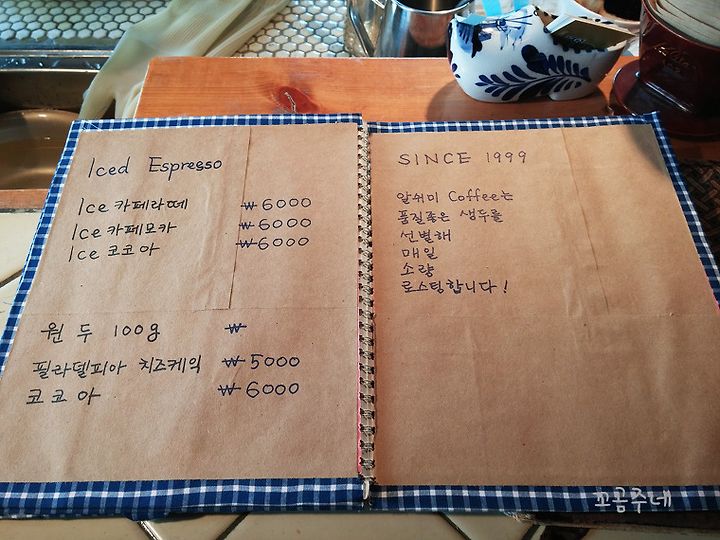 Iced Espresso
Ice 카페라떼 ₩6000
Ice 카페모카 ₩6000
Ice 코코아 ₩6000
원두 100g ₩
필라델피아 치즈케익 ₩5000
코코아 ₩6000
SINCE 1999
알쉬미 Coffee는
품질좋은 생두를
선별해
매일
소량
로스팅합니다!
꼬곰주네